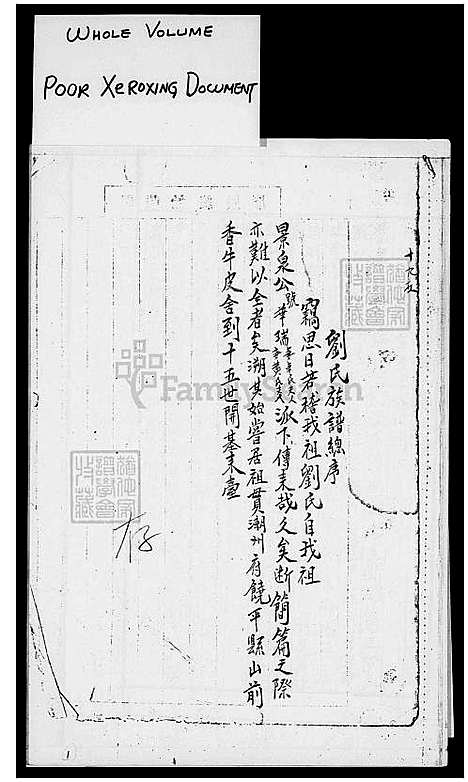 WHOLE VOLUME
POOR XEROXING DOCUMENT
劉氏族譜總序
竊思日若稽我祖劉氏自我祖
景泉公號華瑞派下傳耒哉久矣断簡篇之際
亦難以全者矣溯其始嘗居祖貫潮州府饒平縣山前
香牛皮舍到十五世開基耒臺
存
FamilySearch